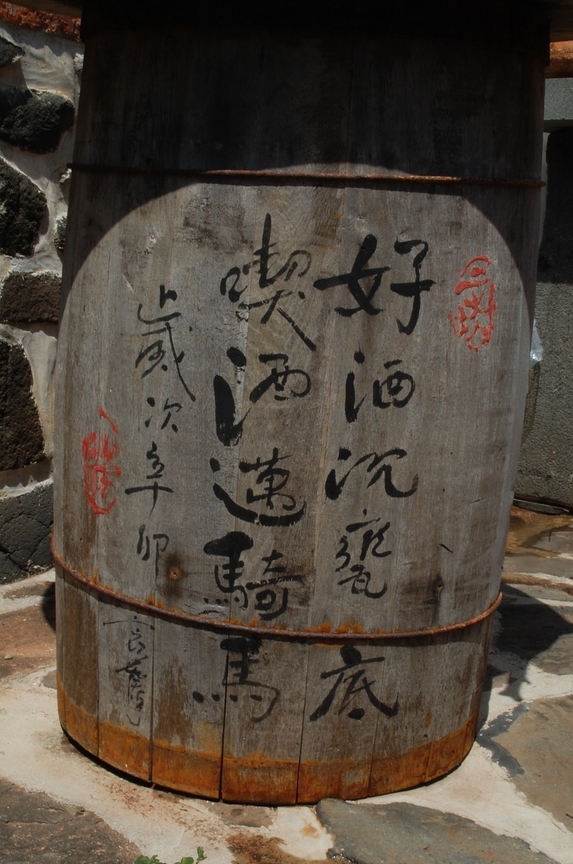 好酒沉甕底
喫酒邁騎馬
歲次辛卯